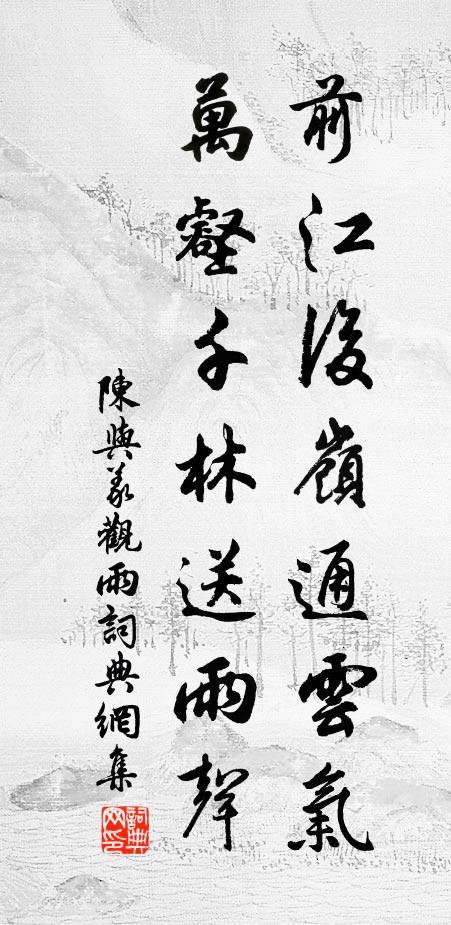 前江後嶺通雲氣
萬壑千林送雨聲
陳與義觀雨詞典網集
詞典網印